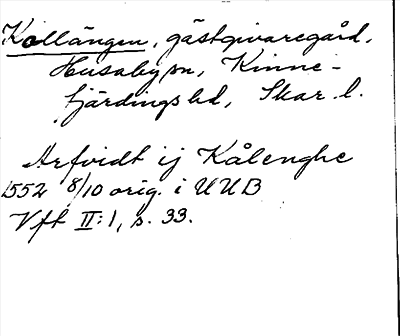 Kollängen, gästgivaregård,
Husaby sn, Kinne-
fjärdings hd, Skar. l.
Arfvidt ij Kålenghe
1552 8/10 orig. i UUB
Vft II:1, s. 33.